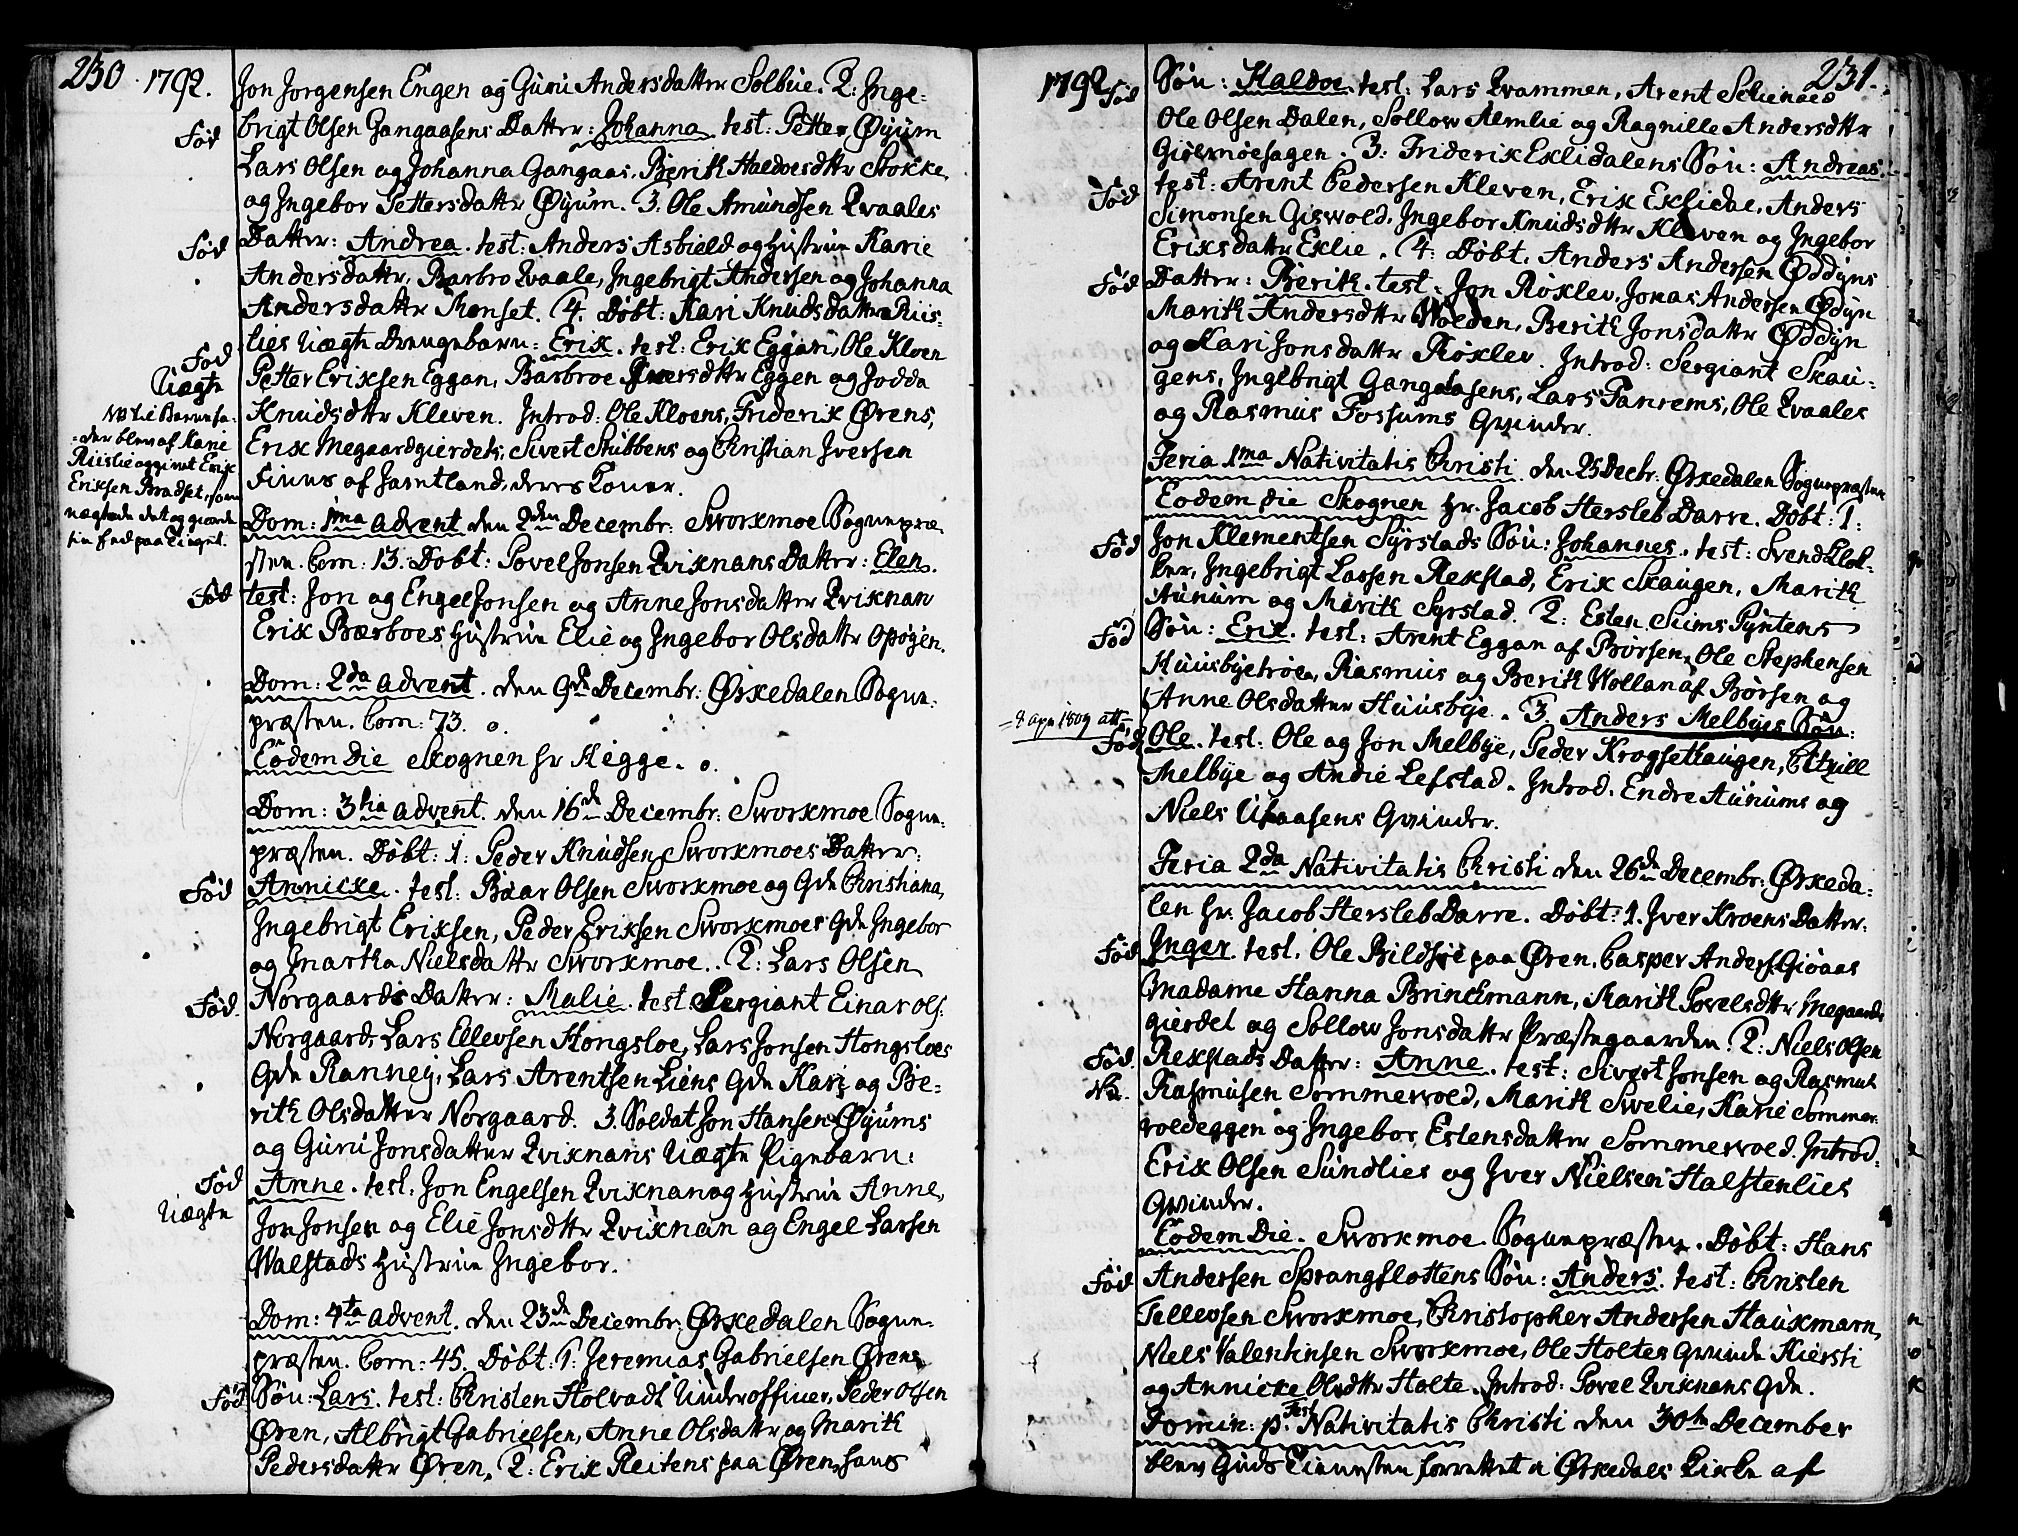 230 1792.
Jon Jorgensen Engen og Guri Andersdatter Solbue. 2: Inge-
Fød brigt Olsen Gangaasens Datter: Johanna. test: Petter Øyum
Lars Olsen og Johanna Gangaas, Berith Haldoesdttr Stokke
og Ingebor Pettersdattr Øyum. 3. Ole Amundsen Qvaales
Fød Datter: Andrea. test: Anders Asbiels og Hustrue Karie
Andersdattr, Barbro Qvaale, Ingebrigt Andersen og Johanna
Andersdattr Monset. 4. Døbt: Kari Knudsdattr Riis-
Fød lies Uægte Drengebarn: Erik. test: Erik Eggan, Ole Kloen
Uægte Petter Eriksen Eggan, Barbroe Iversdttr Eggen og Jodda
Knudsdttr Kleven. Introd: Ole Kloens, Friderik Ørens,
Erik Megaardgierdets, Sivert Stubbens og Christian Iversen
Finns af Jamtland, deres Koner.
NB til Barnefa-
der blev af Karie
Riislie opgivet Erik
Eriksen Bradset, som
nægtede det og giorde
sin Eed paa Tinget.
Dom: 1ma Advent den 2den Decembr: Sworkmoe Sognepræ-
sten. Com: 13. Døbt: Povel Jonsen Qviknans Datter: Elen.
Fød test: Jon og Engel Jonsen og Anne Jonsdatter Qviknan
Erik Bærboes Hustrue Elie og Ingebor Olsdattr Opøyen.
Dom: 2da Advent. den 9de Decembr: Ørkedalen Sogne-
præsten. Com: 73. o.
Eodem Die Skognen hr Hegge. o.
Dom: 3tia Advent. den 16de Decembr: Sworkmoe Sogne-
præsten. Døbt: 1: Peder Knudsen Sworkmoes Datter:
Fød Annicke. test: Baar Olsen Sworkmoe og Qde Christiana,
Ingebrigt Eriksen, Peder Eriksen Sworkmoes Qde Ingebor
og Martha Nielsdattr Sworkmoe. 2: Lars Olsen
Fød. Norgaards Datter: Malie. test: Sergiant Einar Ols:
Norgaard, Lars Ellevsen Hongsloe, Lars Jonsen Hongsloes
Qde Ranney, Lars Arentsen Liens Qde Kari og Be-
rith Olsdatter Norgaard. 3. Soldat Jon Hansen Øyums
og Guru Jonsdatter Qviknans Uægte Pigebarn:
Fød Anne. test: Jon Engelsen Qviknan og Hustrue Anne,
Uægte Jon Jonsen og Elie Jonsdttr Qviknan og Engel Larsen
Walstads Hustrue Ingebor.
Dom: 4ta Advent. den 23de Decembr: Ørkedalen Sogne-
præsten. Com: 45. Døbt: 1. Jeremias Gabrielsen Ørens
Fød Søn: Lars. test: Christen Holvadt Underofficer, Peder Olsen
Øren, Albrigt Gabrielsen, Anne Olsdattr og Marith
Pedersdattr Øren. 2: Erik Reitens paa Øren, hans
1792 231.
Fød Søn: Haldoe. test: Lars Qvammen, Arent Schenaes
Ole Olsen Dalen, Sollow Almlie og Ragnille Andersdttr
Gislmoesagen. 3: Friderik Eklidalens Søn: Andreas.
Fød test: Arent Pedersen Kleven, Erik Eklidal, Anders
Simonsen Giswold, Ingebor Knudsdttr Kleven og Ingebor
Eriksdattr Eklie. 4: Døbt. Anders Andersen Øddyns
Fød Datter: Berith. test: Jon Røxlev, Jonas Andersen Ødyn
Marith Andersdttr Wolden, Berith Jonsdattr Øddyn
og Kari Jonsdattr Røxlev. Introd: Sergiant Skau-
gens, Ingebrigt Gangaasens, Lars Fanrems, Ole Qvaales
og Rasmus Fossums Qvinder.
Feria 1ma Nativitatis Christi. den 25 Decbr: Ørkedalen Sognepræsten
Eodem Die Skognen hr. Jacob Hersleb Darre. Døbt: 1:
Fød Jon Klementsen Syrstads Søn: Johannes. test: Svend Klok-
ker, Ingebrigt Larsen Rekstad, Erik Skaugen, Marith
Aunum og Marith Syrstad. 2: Esten Suims Pyntens
Fød Søn: Erik. test: Arent Eggan af Børsen, Ole Stephensen
Huusbyetrøe, Rasmus og Berith Wollan af Børsen og
Anne Olsdatter Huusbye. 3. Anders Melbyes Søn:
= 8 apr 1809 att =
Fød Ole. test: Ole og Jon Melbye, Peder Krogsethaugen, Chitzill
Melbye og Andie Lefstad. Introd. Endre Aunums og
Niels Ufsaasens Qvinder.
Feria 2da Nativitatis Christi den 26de Decembr: Ørkeda-
len hr: Jacob Hersleb Darre. Døbt: 1. Iver Kroens Datter:
Fød Inger. test. Ole Bildsøe paa Øren, Casper Anders: Giøaas
Madame Hanna Brinckmann, Marith Povelsdttr Megaards
gierdet og Sollow Jonsdattr Præstegaarden. 2: Niels Olsen
Fød. Rekstads Datter: Anne. test: Sivert Jonsen og Rasmus
NB. Rasmusen Sommervold, Marith Swelie, Karie Sommer-
voldeggen og Ingebor Estensdatter Sommervold. Introd:
Erik Olsen Sundlies og Iver Nielsen Halstenlies
Qvinder.
Eodem Die. Sworkmoe Sognepræsten. Døbt: Hans
Fød Andersen Sprangflottens Søn: Anders. test: Christen
Tellevsen Sworkmoe, Christopher Andersen Haukmarn,
Niels Valentinsen Sworkmoe, Ole Holtes Qvinde Kiersti
og Annicke Olsdttr Holte. Introd: Povel Qviknans Qde.
Domin: p. Fest Nativitatis Christi den 30te December
blev Guds Tieneste forrettet i Ørkedals Kirke af